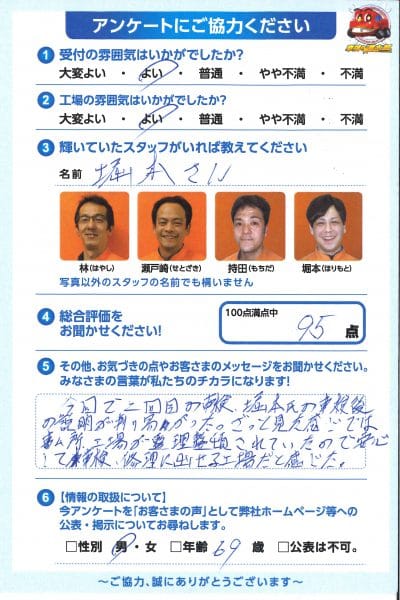 アンケートにご協力ください
1 受付の雰囲気はいかがでしたか?
大変よい ・ よい ・ 普通 ・ やや不満 ・ 不満
2 工場の雰囲気はいかがでしたか?
大変よい ・ よい ・ 普通 ・ やや不満 ・ 不満
3 輝いていたスタッフがいれば教えてください
名前 堀本さん
林(はやし) 瀬戸崎(せとざき) 持田(もちだ) 堀本(ほりもと)
写真以外のスタッフの名前でも構いません
4 総合評価を
お聞かせください!
100点満点中
95 点
5 その他、お気づきの点やお客さまのメッセージをお聞かせください。
みなさまの言葉が私たちのチカラになります!
今回で二回目の車検、堀本氏の車検後
の説明が判り易かった。ざっと見た感じでは
事ム所、工場が整理整頓されていたので安心
して車検、修理に出せる工場だと感じた。
6 【情報の取扱について】
今アンケートを「お客さまの声」として弊社ホームページ等への
公表・掲示についてお尋ねします。
□性別 男・女 □年齢 69 歳 □公表は不可。
〜ご協力、誠にありがとうございます〜